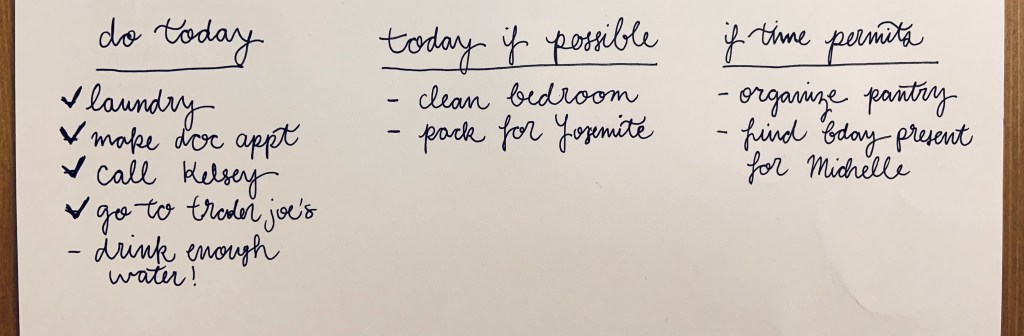 do today
✓ laundry
✓ make doc appt
✓ call Kelsey
✓ go to trader joe's
- drink enough
water!
today if possible
- clean bedroom
- pack for Yosemite
if time permits
- organize pantry
- find bday present
for Michelle